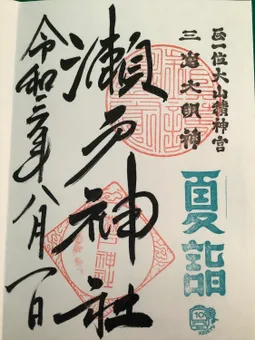 正一位大山積神宮
三島大明神
夏詣
瀬戸神社
令和三年八月一日